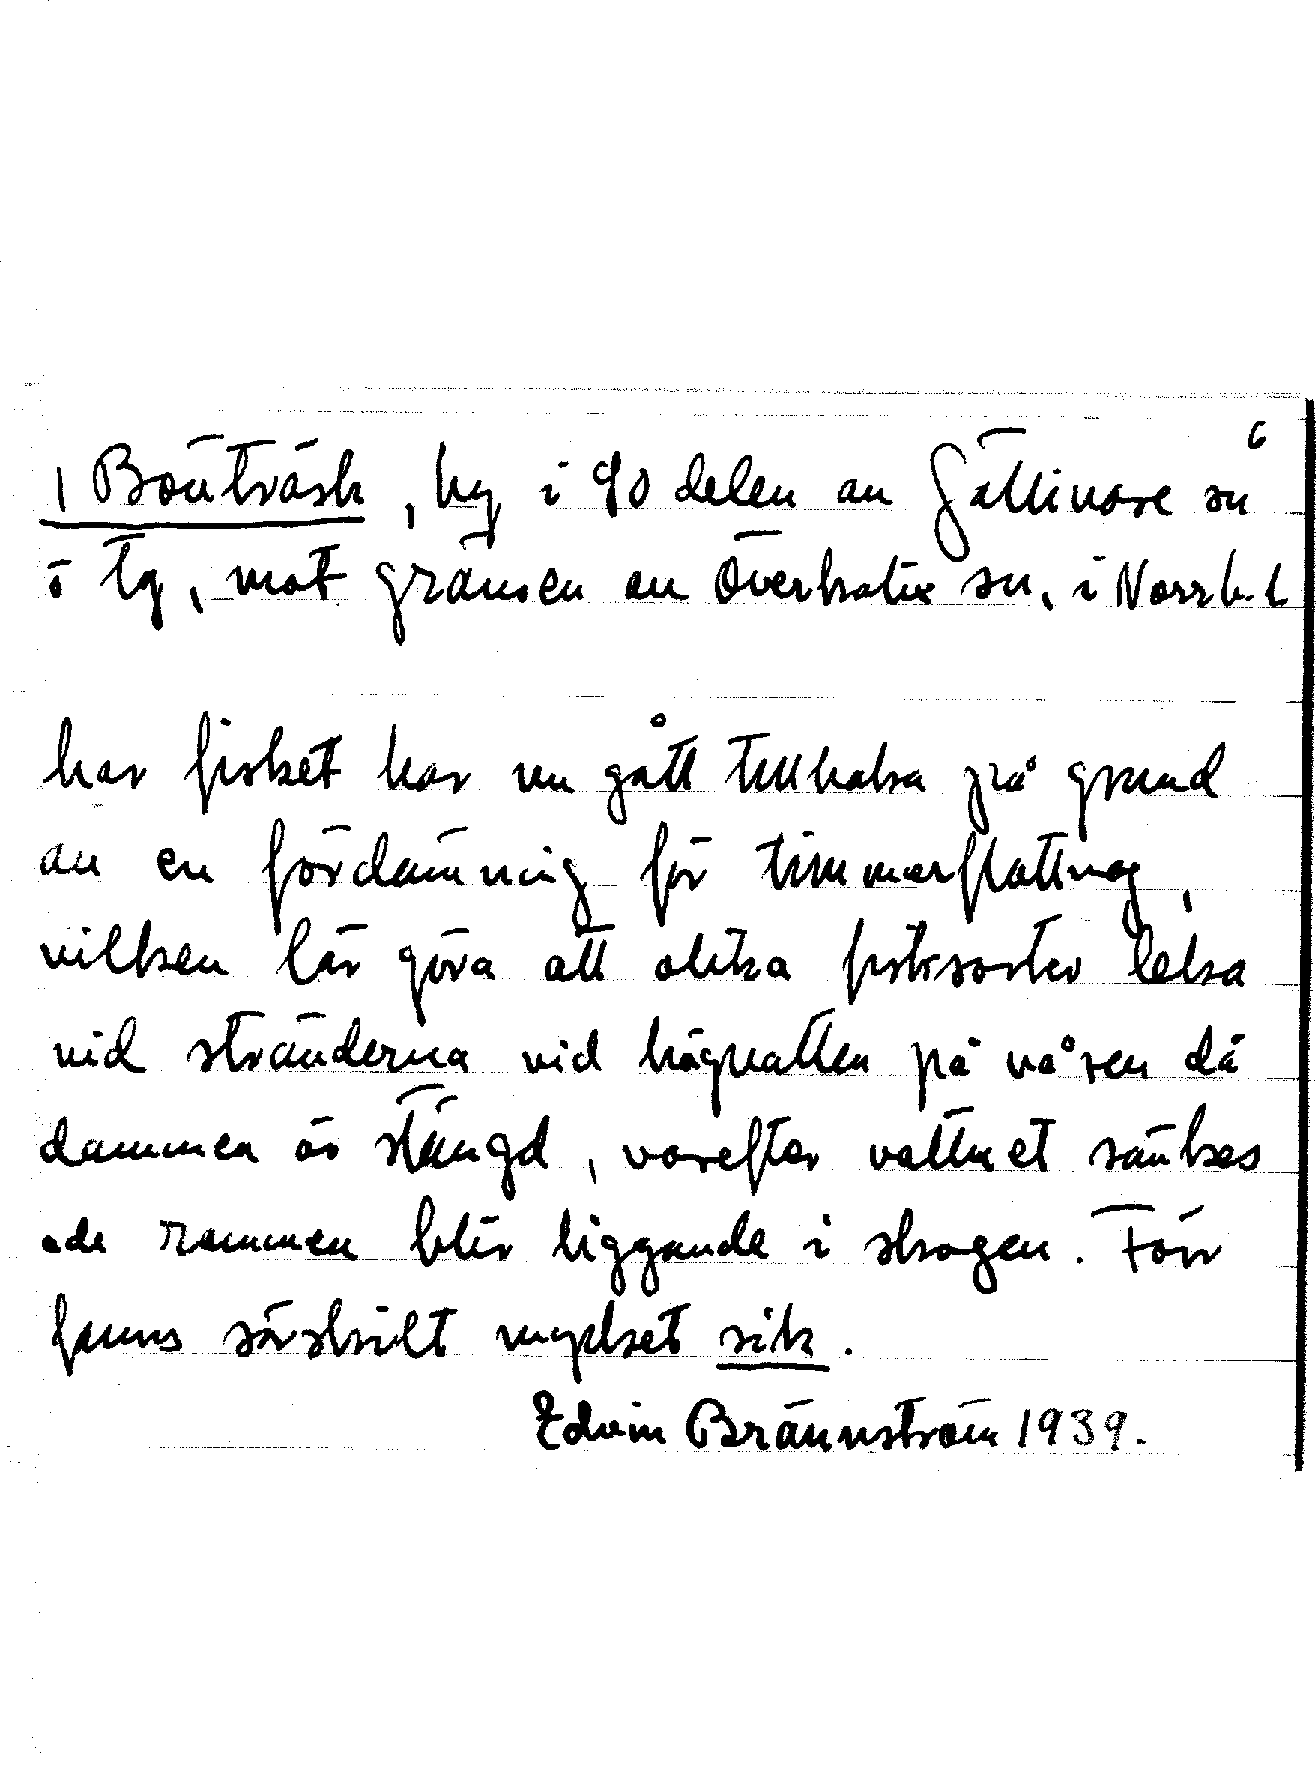 6
I Bönträsk, by i SO delen av Gällivare sn
o tg, mot gränsen av Överkalix sn, i Norrb. l
har fisket har nu gått tillbaka på grund
av en fördämning för timmerflottning,
vilken lär göra att olika fisksorter leka
vid stränderna vid högvatten på våren då
dammen är stängd, varefter vattnet sänkes
rommen blir liggande i skogen. Förr
fanns särskilt mycket sik.
Edvin Brännström 1939.